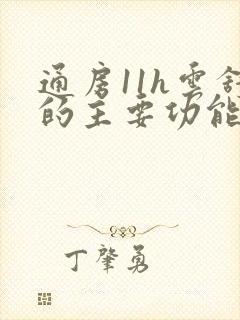 通房11h雲舒
的主要功能
丁肇勇